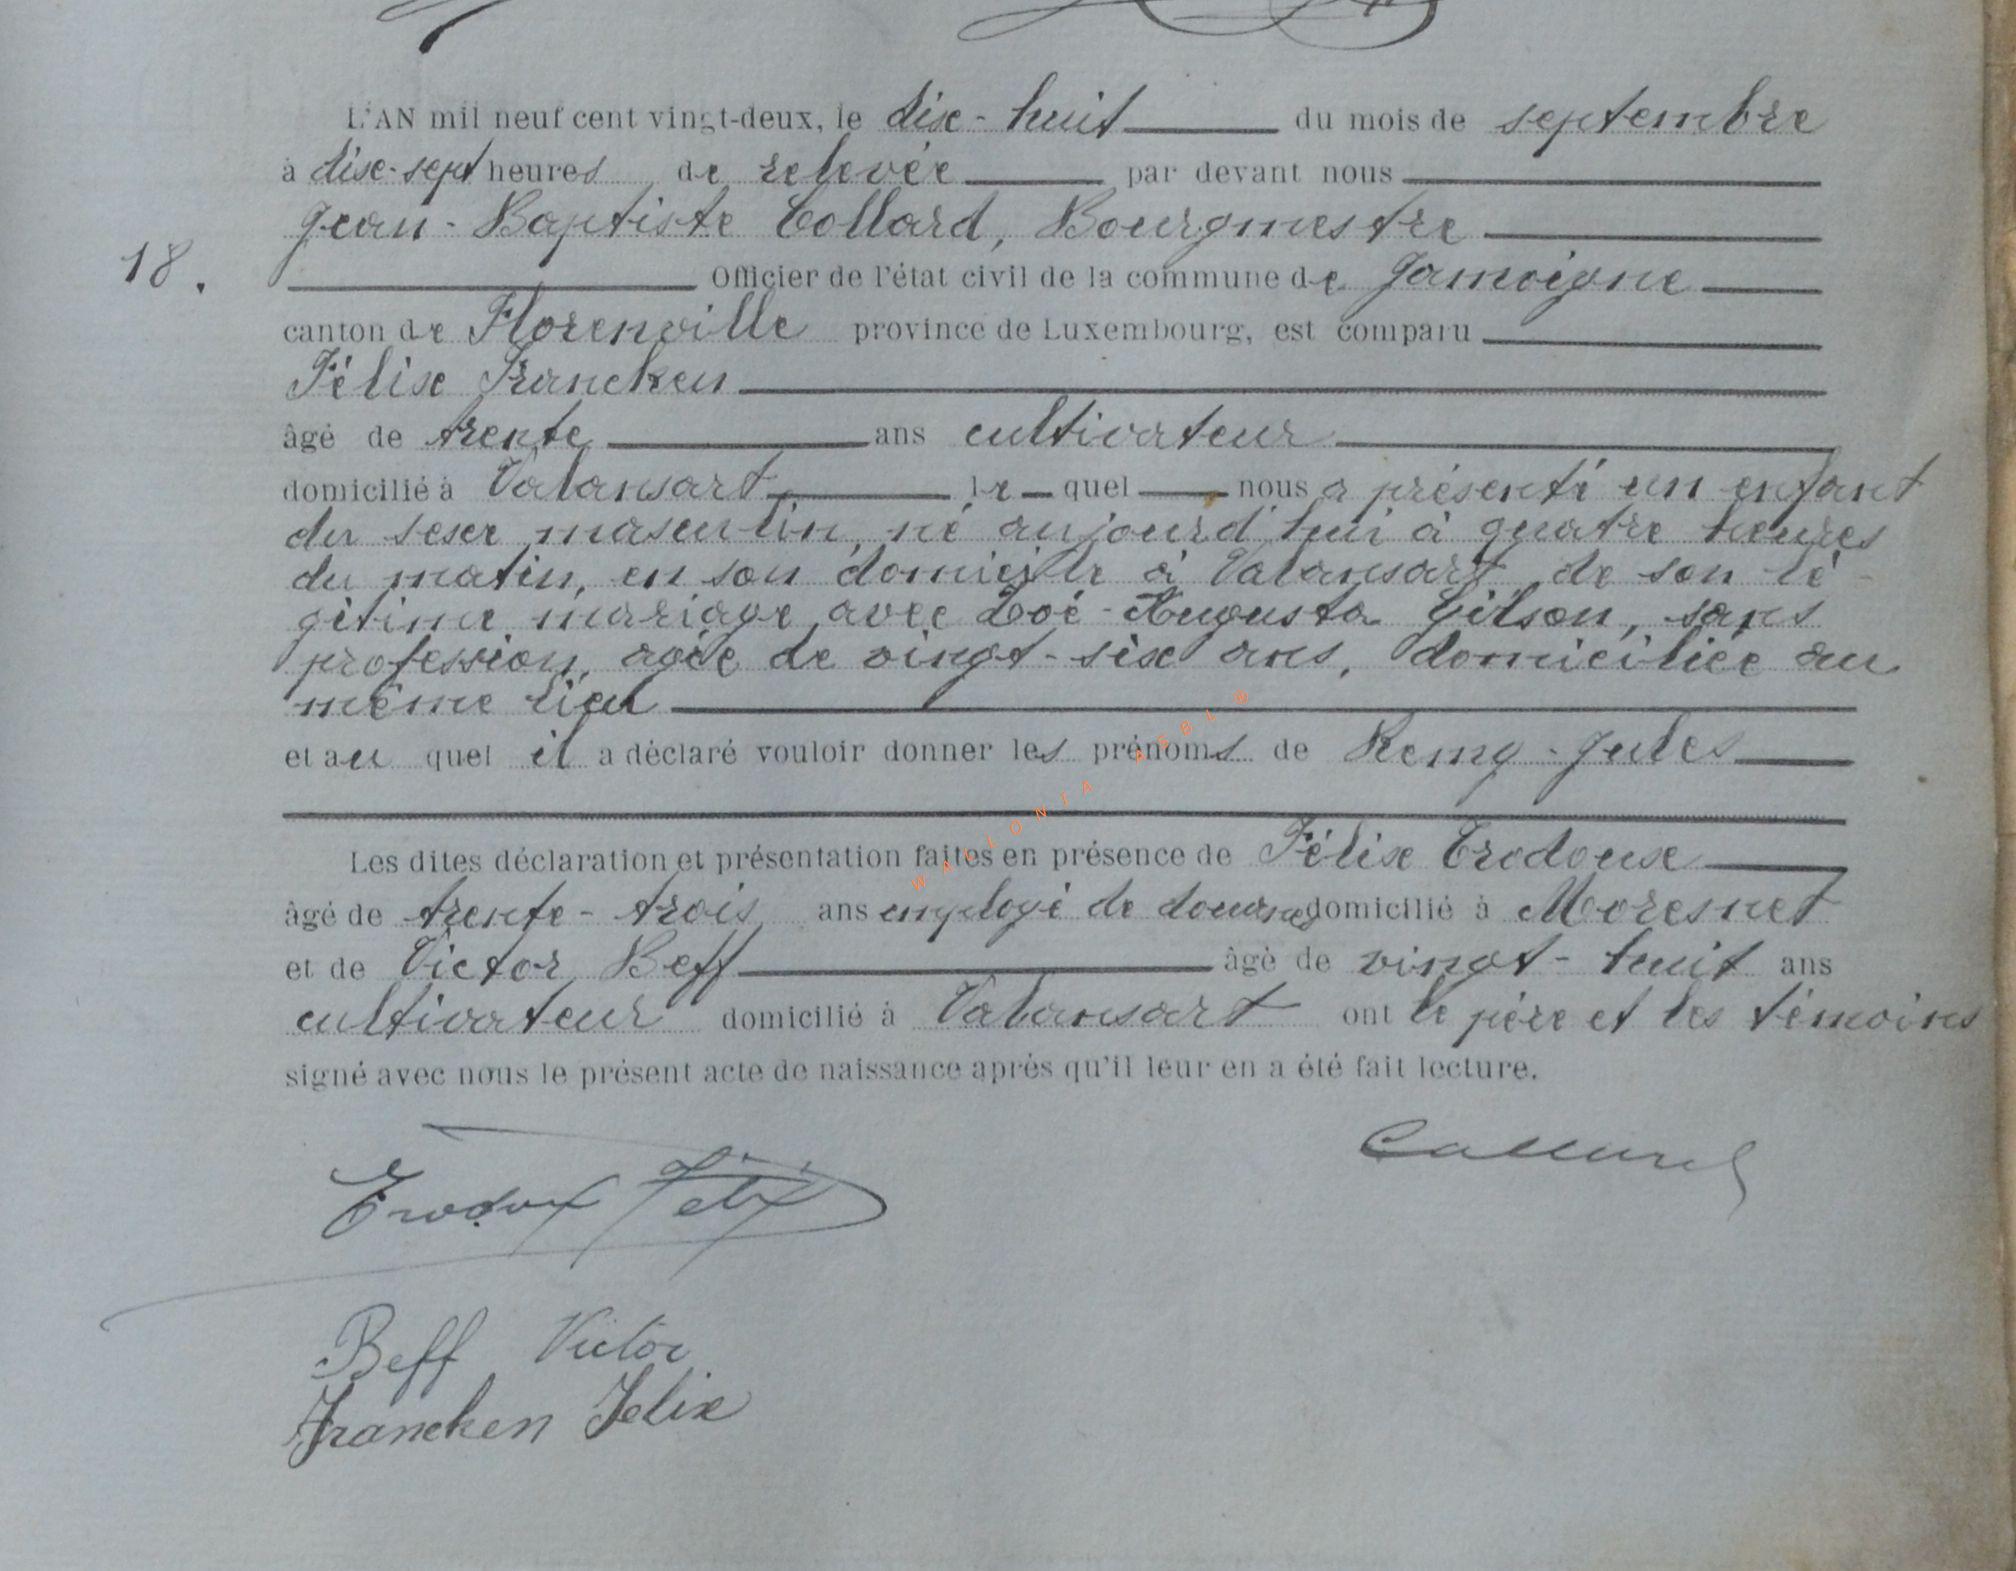 L'AN mil neuf cent vingt-deux, le dix-huit du mois de septembre
à dix-sept heures de relevée par devant nous
Jean-Baptiste Collard, Bourgmestre
18. Officier de l'état civil de la commune de Jamoigne
canton de Florenville province de Luxembourg, est comparu
Félix Francken
âgé de trente ans cultivateur
domicilié à Valansart le quel nous a présenté un enfant
du sexe masculin, né aujourd'hui à quatre heures
du matin, en son domicile à Valansart, de son lé-
gitime mariage avec Zoé-Augusta Gilson, sans
profession, agée de vingt-six ans, domiciliée au
même lieu
et au quel il a déclaré vouloir donner les prénoms de Remy-Jules
Les dites déclaration et présentation faites en présence de Félix Erodoux
âgé de trente-trois ans employé de douanes domicilié à Moresnet
et de Victor Beff âgé de vingt-huit ans
cultivateur domicilié à Valansart ont le père et les témoins
signé avec nous le présent acte de naissance après qu'il leur en a été fait lecture.
Collard
Erodoux Felix
Beff Victor
Francken Felix
WALLONIA ASBL ©